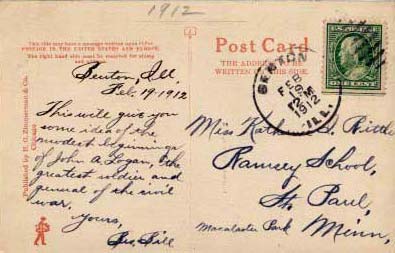 1912
THIS SIDE may have a message written upon it for
FOREIGN IN THE UNITED STATES AND EUROPE.
The right hand side must be reserved for stamp
Post Card
THE ADDRESS TO BE
WRITTEN ON THIS SIDE.
BENTON
FEB
19
12 M
1912
ILL.
Benton, Ill.
Feb. 19-1912
This will give you
some idea of the
modest beginnings
of John A. Logan, the
greatest soldier and
general of the civil
war.
Yours,
Bill
Published by H. G. Zimmerman & Co.
Chicago
Miss Kath
Ramsey School,
St. Paul,
Macalaster Park Minn,